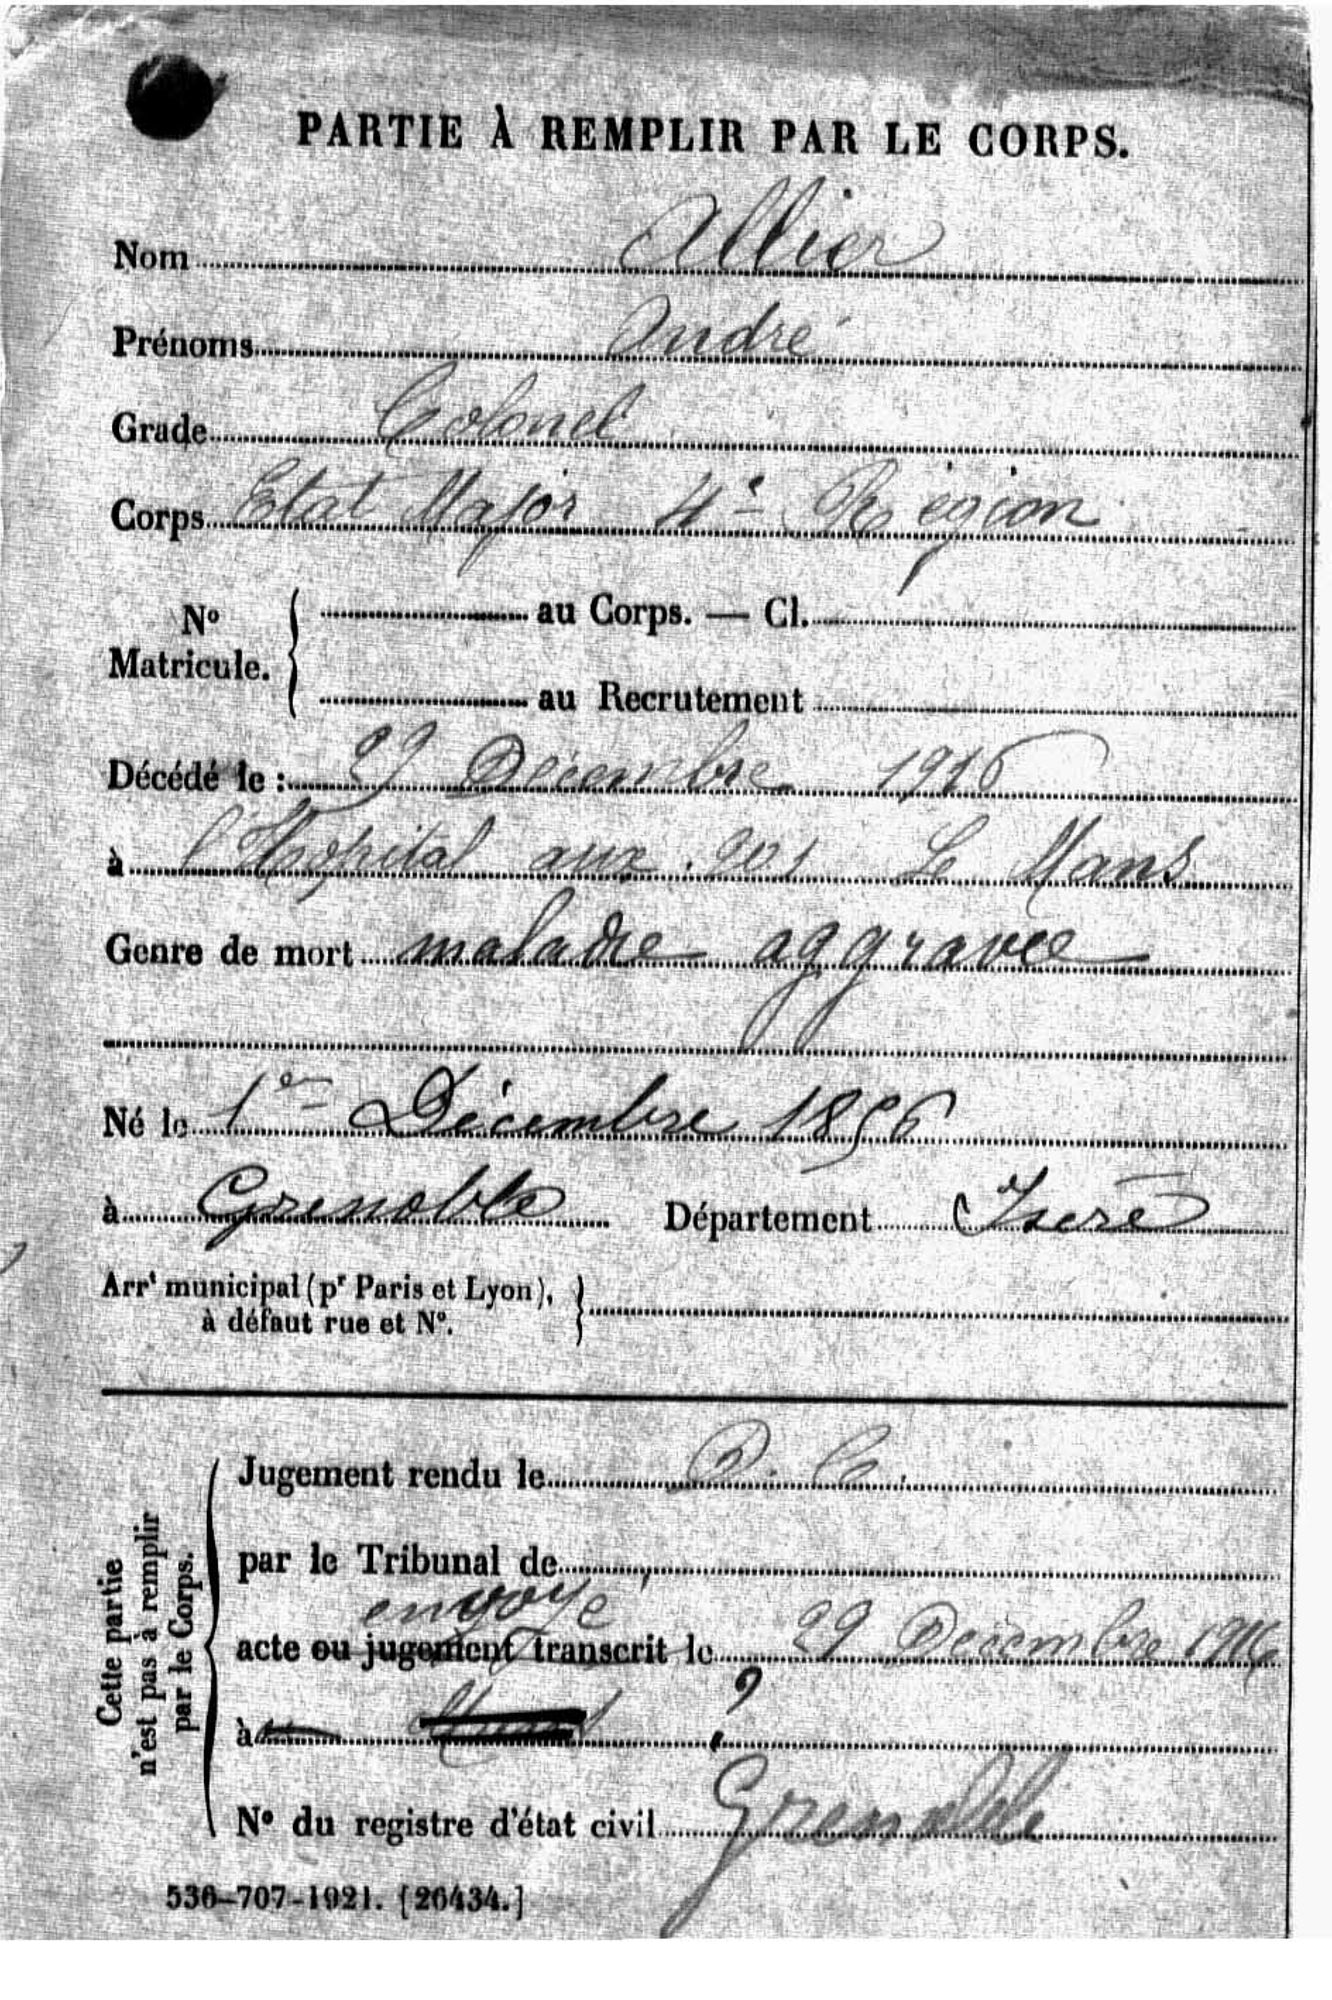 PARTIE À REMPLIR PAR LE CORPS.
Nom Allier
Prénoms André
Grade Colonel
Corps Etat Major 4e Région
No
Matricule.
au Corps. — Cl.
au Recrutement
Décédé le : 29 Décembre 1916
à l'Hopital aux. 201 Le Mans
Genre de mort maladie aggravée
Né le 1er Décembre 1856
à Grenoble Département Isère
Arrt municipal (pr Paris et Lyon),
à défaut rue et No.
Cette partie
n'est pas à remplir
par le Corps.
Jugement rendu le D. C.
par le Tribunal de
envoyé
acte ou jugement transcrit le 29 Décembre 1916
à ?
No du registre d'état civil Grenoble
536-707-1921. [26434.]